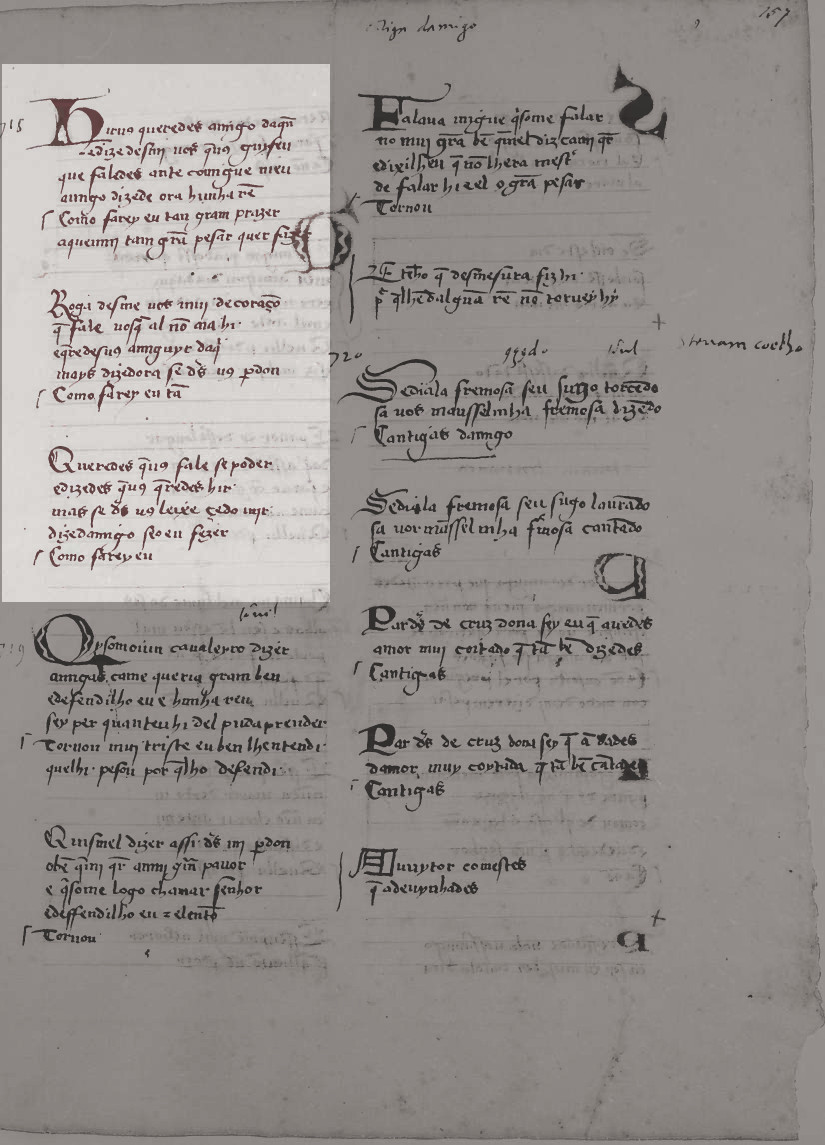 tiga damigo
157
715
Hirvus queredes amigo daqn̄
edizedesmi uos q̄u9 guyseu
que faledes ante comigue meu
amigo dizede ora hunha rē
Como farey eu tan gram prazer
aquemmi tam grā pesar quer fazer
Roga desme uos mui decoraçō
q̄ fale uosq̄ al nō aia hi
mays dizedora se d̄s u9 p̄don
Como farey eu tā
Queredes q̄u9 fale se poder
edizedes q̄u9 q̄redes hir
mas se d̄s u9 leixe cedo uijr
dizedamigo seoeu fezer
Como farey eu
719
Oysomoiun caualeyro dizer
amigas came queria gram ben
edefendilho eu e hunha ren
sey per quanteuhi del pudaprender
Tornou mui triste eu ben lhentendi
quelhi pesou por q̄lho defendi
Quismel dizer assi d̄s mi p̄don
obē q̄mi q̄r amig grā pauor
e q̄some logo chamar senhor
edeffendilho eu
Tornou
Falaua migue q̄some falar
no mui grā bē q̄mel diz camj q̄r
edixilheu q̄ nō lhera mest̄
de falar hi e el ograṃ pesar
Tornou
E tēho q̄ desmesura fiz hi
p̄ q̄lhe dalguā rē nō toruey hy
720
Steuam coelho
Sedia la fremosa seu sirgo torcēdo
sa uos mansselinha fremosa dizēdo
Cantigas damigo
Sedia la fremosa seu sirgo laurādo
sa uor mansselinha fremosa cantādo
Cantigas
Par d̄s de cruz dona sey eu q̄ auedes
amor mui coitado q̄ tā bē dizedes
Cantigas
Par d̄s de cruz dona sey q̄ ādades
damor muy coytada q̄ tā bē cātades
Cantigas
Auuytor comestes
q̄ adeuynhades